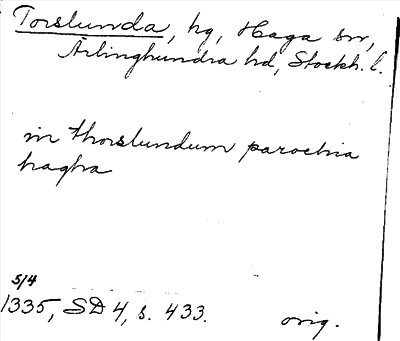 Torslunda, hg, Haga sn,
Ärlinghundra hd, Stockh. l.
in thorslundum parochia
hagha
5/4
1335, SD 4, s. 433. orig.